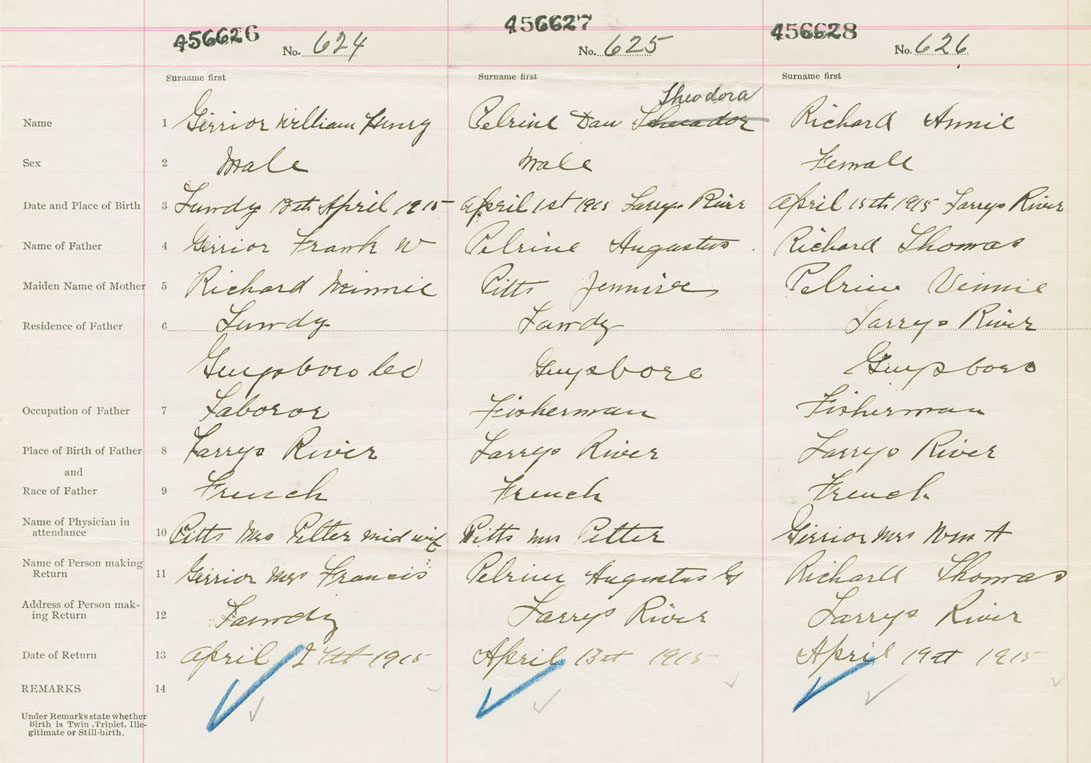 456626 No. 624 456627 No. 625 456628 No. 626
Surname first Surname first Surname first
Theodora
Name 1 Girrior William Henry Pelrine Dan Theador Richard Annie
Sex 2 Male Male Female
Date and Place of Birth 3 Lundy 13th April 1915 April 1st 1915 Larrys River April 15th 1915 Larrys River
Name of Father 4 Girrior Frank W Pelrine Augustus Richard Thomas
Maiden Name of Mother 5 Richard Minnie Pitts Pelrine Vinnie
Residence of Father 6 Lundy Lundy Larrys River
Guysboro Co Guysboro Guysboro
Occupation of Father 7 Laboror Fisherman Fisherman
Place of Birth of Father 8 Larrys River Larrys River Larrys River
and
Race of Father 9 French French French
Name of Physician in
attendance 10 Pitts Mrs Petter midwif Pitts Mrs Petter Girrior Mrs Wm A
Name of Person making
Return 11 Girrior Mrs Francis Pelrine Augustus Richard Thomas
Address of Person mak-
ing Return 12 Lundy Larrys River Larrys River
Date of Return 13 April 1915 April 13th 1915 April 19th 1915
REMARKS 14
Under Remarks state whether
Birth is Twin, Triplet, Ille-
gitimate or Still-birth.